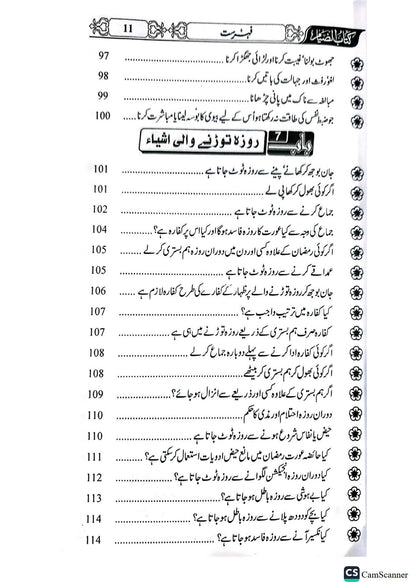 کتاب الصیام فہرست 11
جھوٹ بولنا‘ غیبت کرنا اور لڑائی جھگڑا کرنا 97
لغو‘ رفث اور جہالت کی باتیں کرنا 98
مبالغہ سے ناک میں پانی چڑھانا 99
جو ضبط نفس کی طاقت نہ رکھتا ہو اُس کے لیے بیوی کا بوسہ لینا یا مباشرت کرنا 100
باب 7 روزہ توڑنے والی اشیاء
جان بوجھ کر کھانے‘ پینے سے روزہ ٹوٹ جاتا ہے 101
اگر کوئی بھول کر کھا پی لے 101
جماع کرنے سے روزہ ٹوٹ جاتا ہے 102
جماع کی وجہ سے کیا عورت کا روزہ فاسد ہوگا اور کیا اس پر کفارہ ہے؟ 104
اگر کوئی رمضان کے علاوہ کسی اور دن میں دوران روزہ ہم بستری کر لے 105
عمداً قے کرنے سے روزہ ٹوٹ جاتا ہے 105
جان بوجھ کر روزہ توڑنے والے پر ظہار کے کفارے کی طرح کفارہ لازم ہے 106
کیا کفارہ میں ترتیب واجب ہے؟ 107
کفارہ صرف ہم بستری کے ذریعے روزہ توڑنے میں ہی ہے 107
اگر کوئی کفارہ ادا کرنے سے پہلے دوبارہ جماع کر لے 108
اگر کوئی بھول کر ہم بستری کر بیٹھے 108
اگر ہم بستری کے علاوہ کسی اور ذریعے سے انزال ہو جائے؟ 109
دوران روزہ احتلام اور مذی کا حکم 110
حیض یا نفاس شروع ہونے سے روزہ ٹوٹ جاتا ہے 110
کیا حائضہ عورت رمضان میں مانع حیض ادویات استعمال کر سکتی ہے؟ 111
کیا دوران روزہ انجکشن لگوانے سے روزہ ٹوٹ جاتا ہے؟ 112
کیا بے ہوشی سے روزہ باطل ہو جاتا ہے؟ 113
کیا بچے کو دودھ پلانے سے روزہ باطل ہو جاتا ہے؟ 114
کیا نکسیر آنے سے روزہ فاسد ہو جاتا ہے؟ 114
CS CamScanner